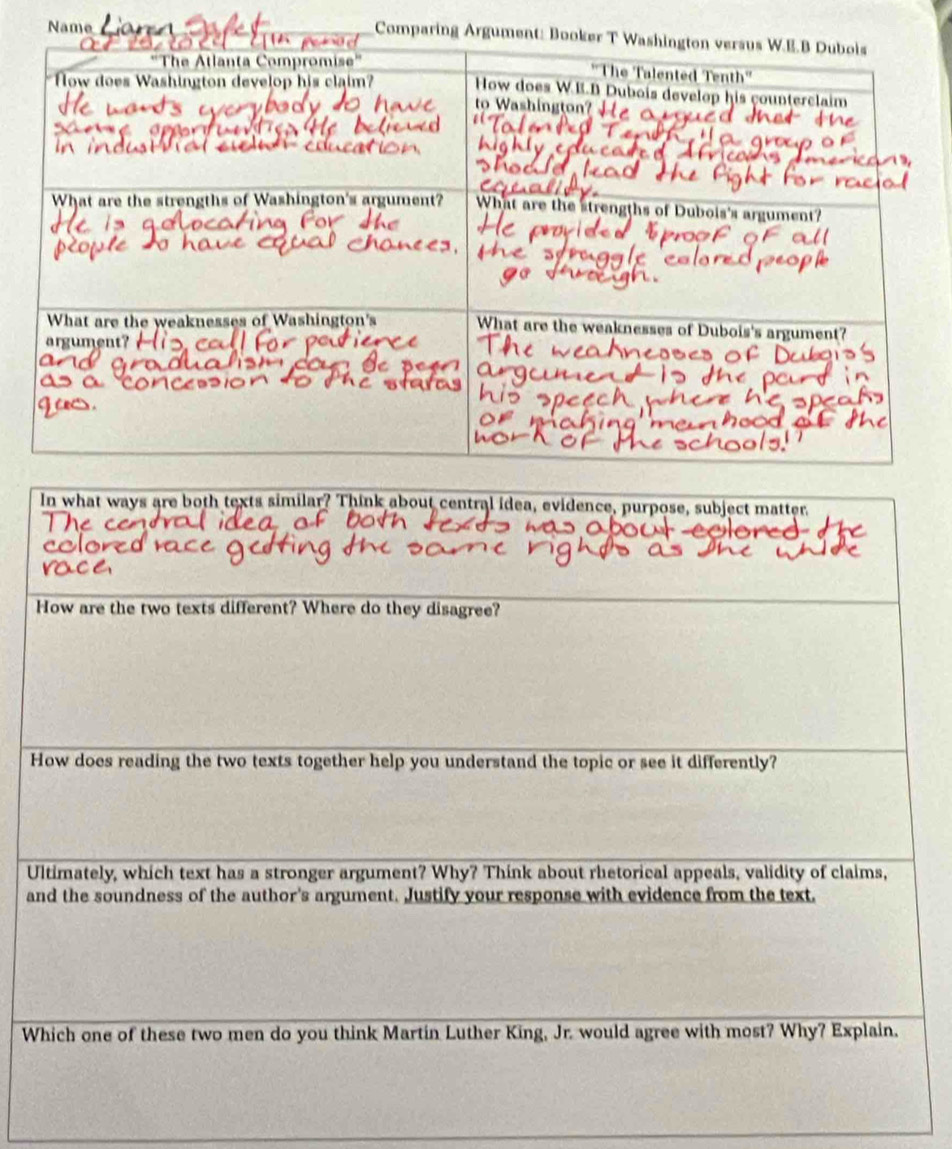 Name Liaren
Comparing Argument: Booker T Washington versus W.E.B Dubois
"The Atlanta Compromise"
How does Washington develop his claim?
He wants everybody to have
same opportunities. He believed
in industrial education.
"The Talented Tenth"
How does W.E.B Dubois develop his counterclaim
to Washington? He argued that the
"Talented Tenth," a group of
highly educated Africans Americans,
should lead the fight for racial
equality.
What are the strengths of Washington's argument?
He is advocating for the
people to have equal chances.
What are the strengths of Dubois's argument?
He provided proof of all
the struggle colored people
go through.
What are the weaknesses of Washington's
argument? His call for patience
and gradualism can be seen
as a concession to the status
quo.
What are the weaknesses of Dubois's argument?
The weaknesses of Dubois's
argument is the part in
his speech, where he speaks
of making "manhood of the
work of the schools!"
In what ways are both texts similar? Think about central idea, evidence, purpose, subject matter.
The central idea of both texts was about colored the
colored race getting the same rights as the white
race.
How are the two texts different? Where do they disagree?
How does reading the two texts together help you understand the topic or see it differently?
Ultimately, which text has a stronger argument? Why? Think about rhetorical appeals, validity of claims,
and the soundness of the author's argument. Justify your response with evidence from the text.
Which one of these two men do you think Martin Luther King, Jr. would agree with most? Why? Explain.